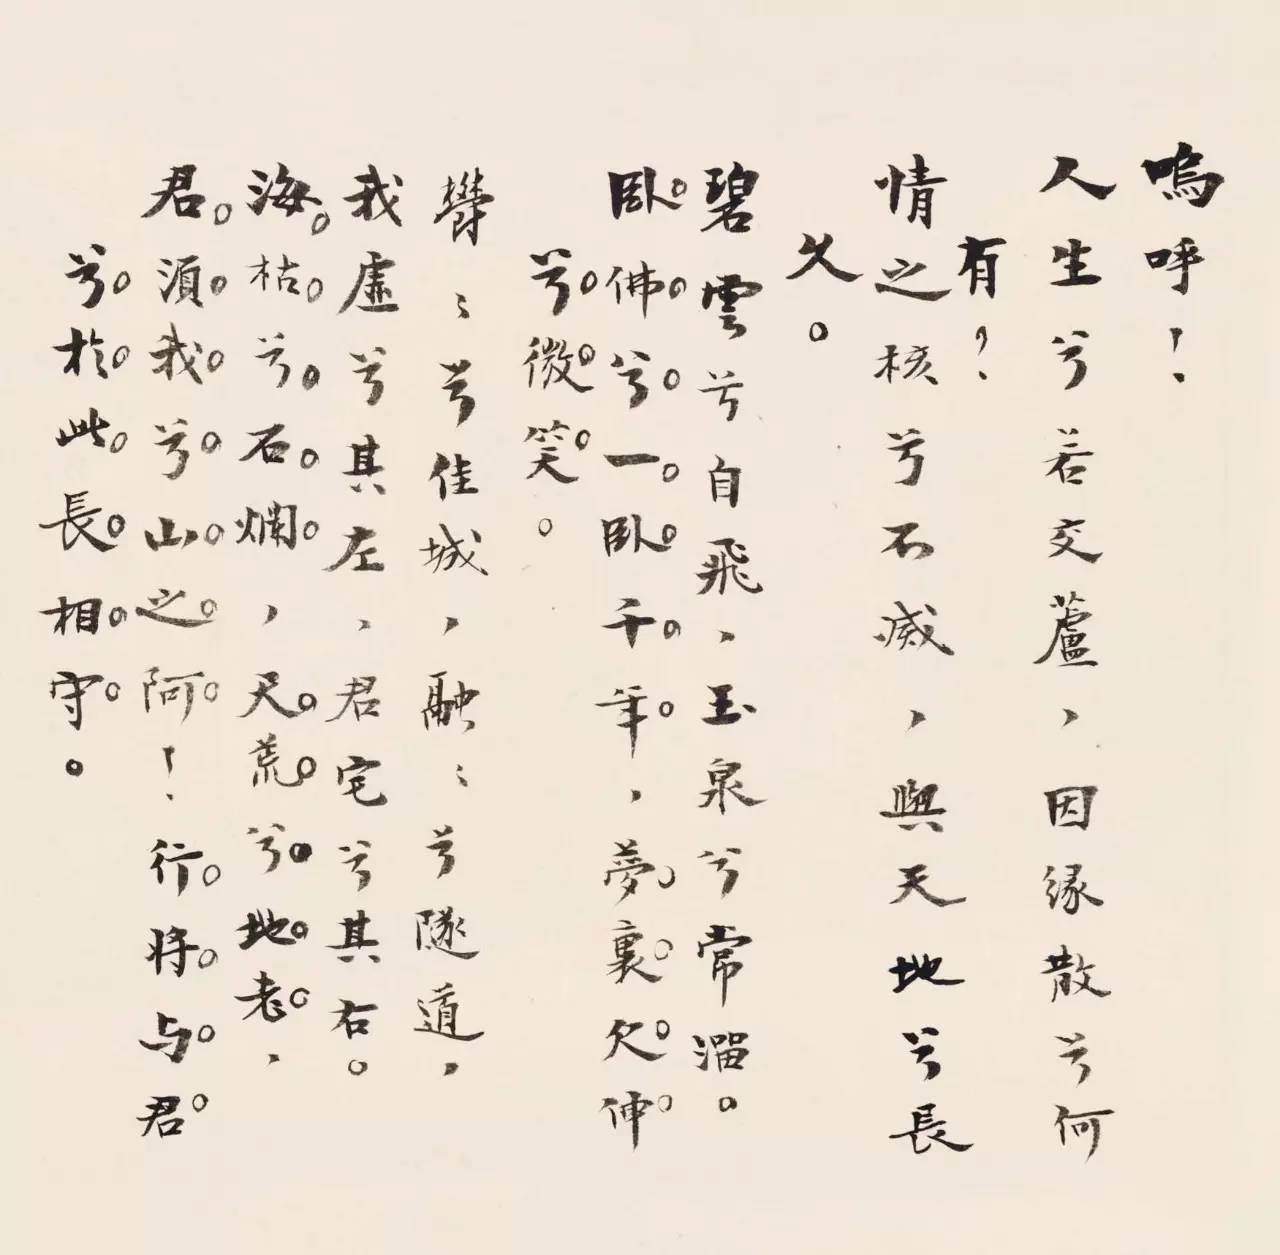 嗚呼！
人生兮若交蘆，因緣散兮何
有？
情之核兮不滅，與天地兮長
久。
碧雲兮自飛，玉泉兮常溜。
臥佛兮一臥千年，夢裏欠伸
兮微笑。
欝〻兮佳城，融〻兮隧道，
我虛兮其左、君宅兮其右。
海枯兮石爛，天荒兮地老，
君須我兮山之阿！行將与君
兮於此長相守。